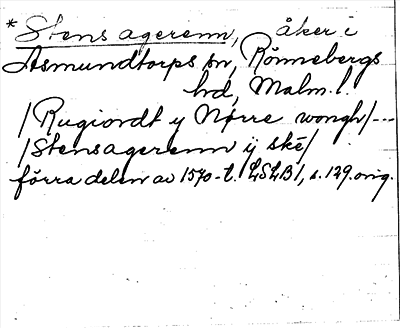 *Stens agerenn, åker i
Asmundtorps sn, Rönnebergs
hd, Malm. l.
/Rugiordt y Nørre wongh/---
/Stensagerenn ÿ ske/
förra delen av 1570-t. LSLB1, s. 129. orig.